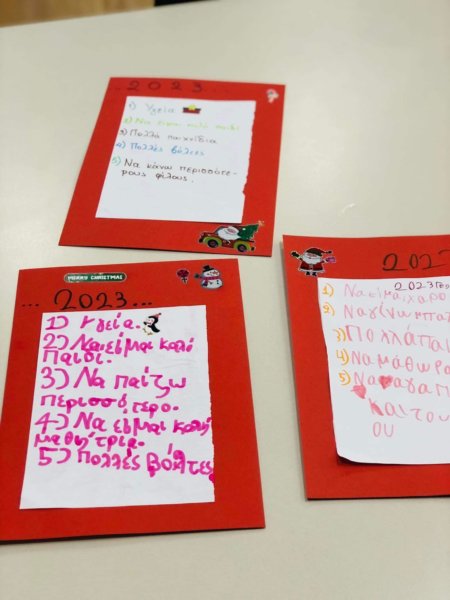 2023
1) Υγεία
2) Να είμαι καλό παιδί
3) Πολλά παιχνίδια
4) Πολλές βόλτες
5) Να κάνω περισσότε-
ρους φίλους.
MERRY CHRISTMAS
... 2023...
1) Υγεία.
2) Να είμαι καλό
παιδί.
3) Να παίζω
περισσότερο.
4) Να είμαι καλή
μαθήτρια.
5) Πολλές βόλτες
2023
1) Να είμαι χαρο
2
3) Πολλά παι
4) Να μάθω
5)
και του
ου